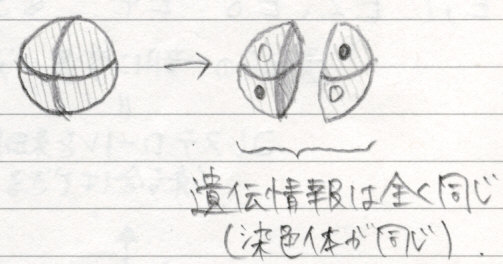 遺伝情報は全く同じ
(染色体が同じ).